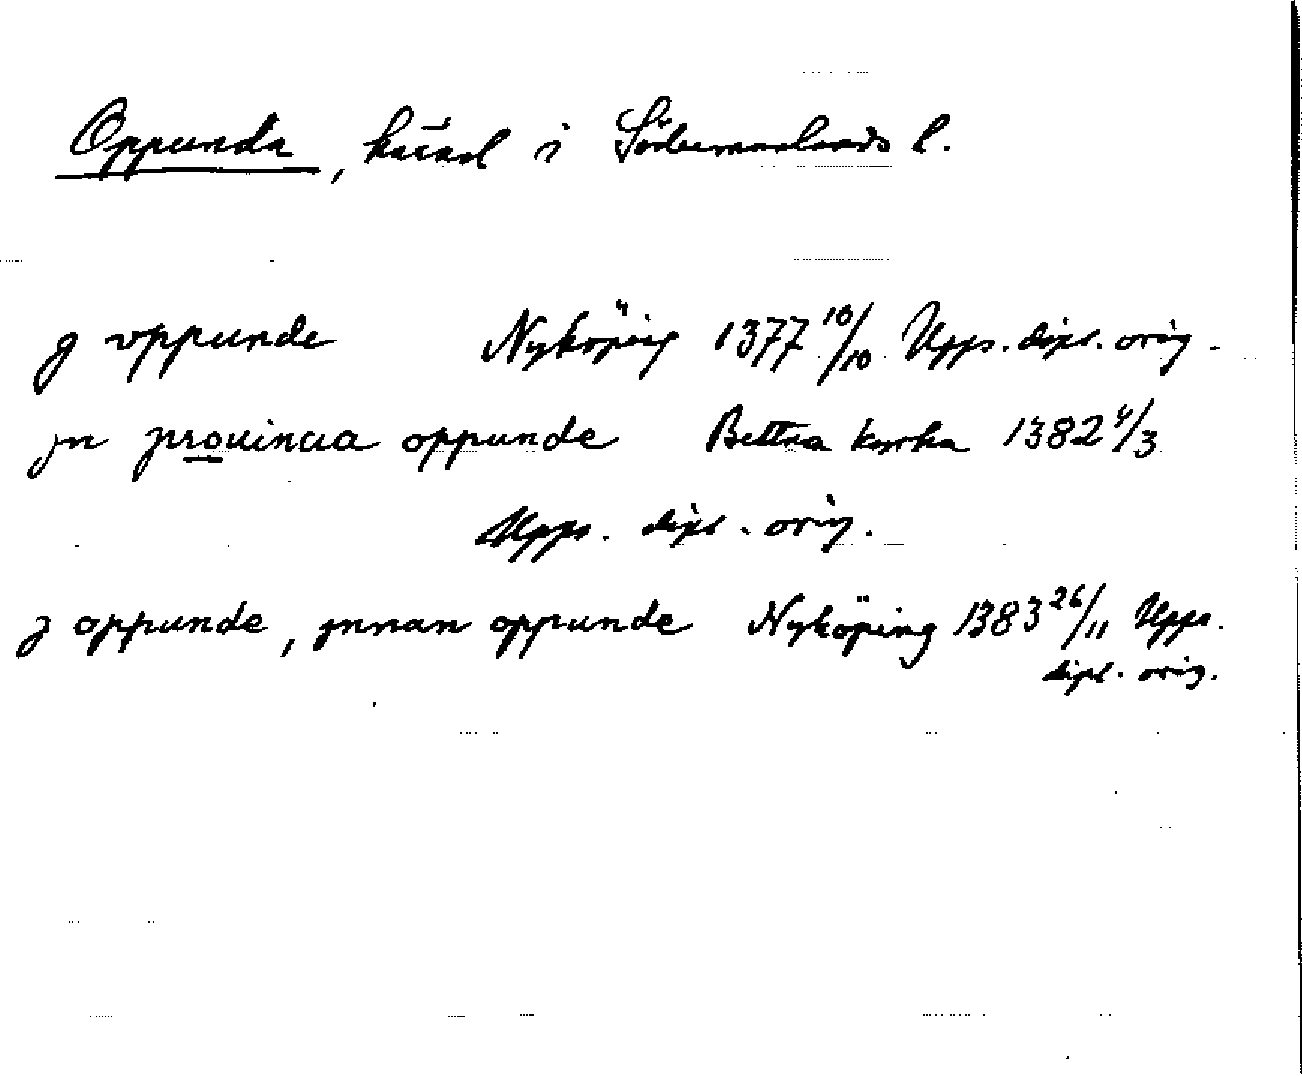 Oppunda, härad i Södermanlands l.
j vppunde Nyköping 1377 10/10 Upps. dipl. orig.
jn prouincia oppunde Bettna kyrka 1382 4/3
Upps. dipl. orig.
j oppunde, jnnan oppunde Nyköping 1383 26/11 Upps.
dipl. orig.